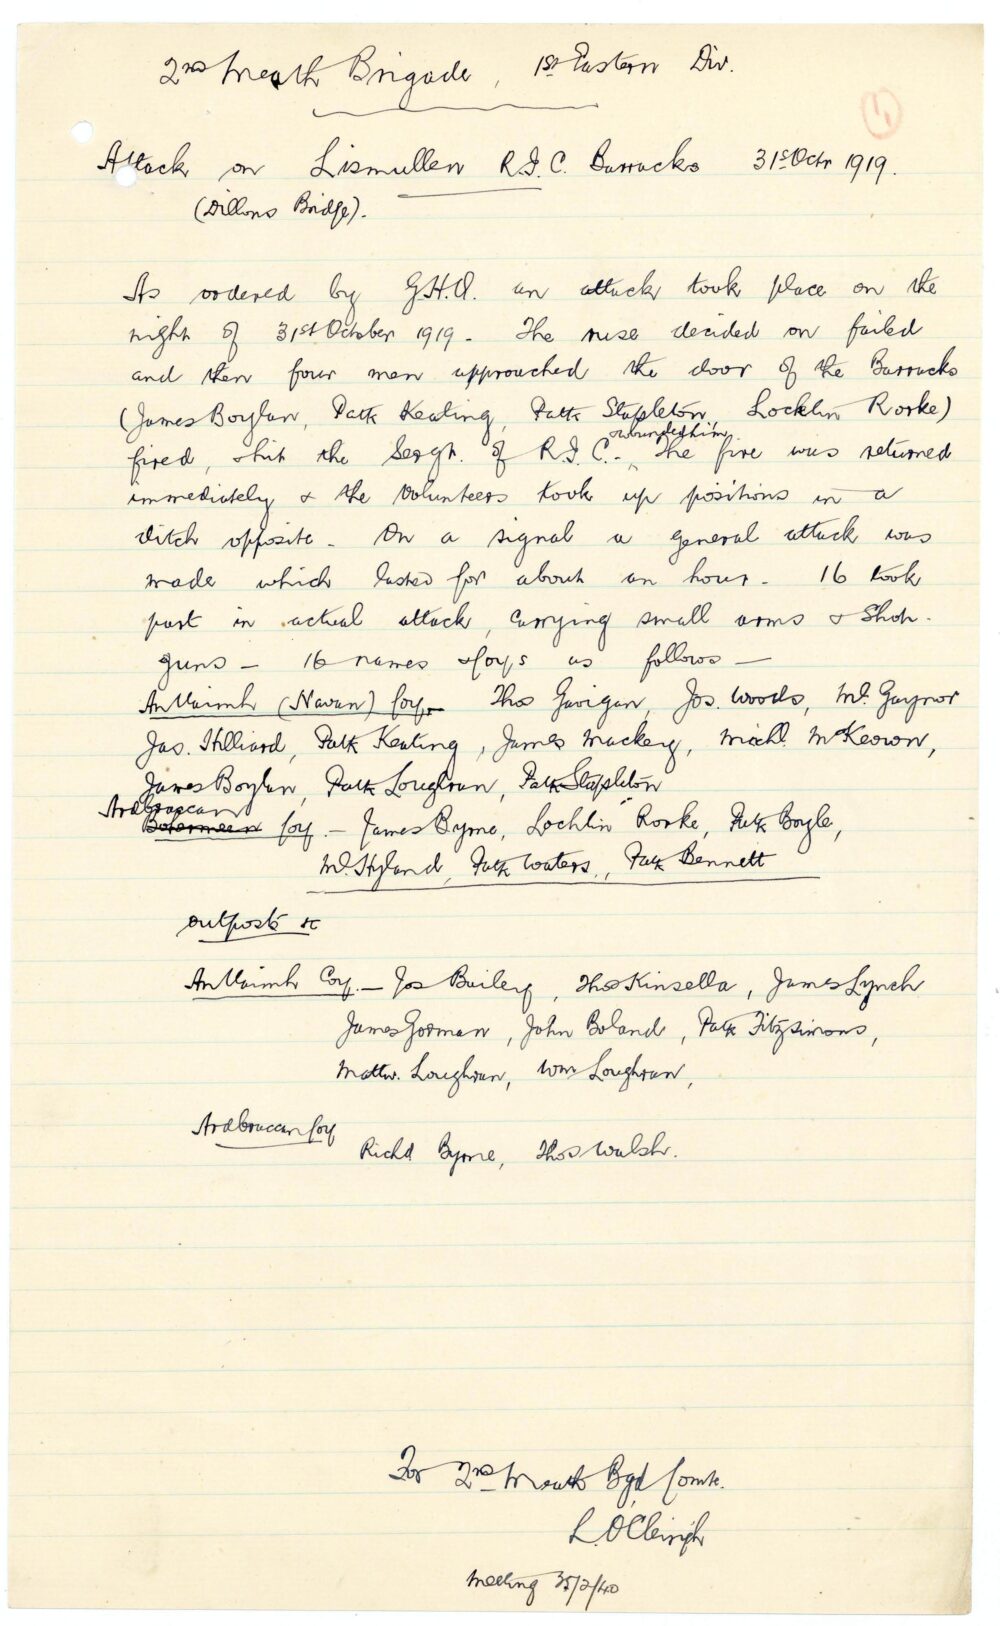 2nd Meath Brigade, 1st Eastern Div.
Attack on Lismullen R.I.C. Barracks 31st Octr 1919.
(Dillons Bridge).
As ordered by G.H.Q. an attack took place on the
night of 31st October 1919. The ruse decided on failed
and then four men approached the door of the Barracks
(James Boylan, Patk Keating, Patk Stapleton, Locklin Rorke)
wounded him
fired, & hit the Sergt. of R.I.C. - The fire was returned
immediately & the Volunteers took up positions in a
ditch opposite. On a signal a general attack was
made which lasted for about an hour. 16 took
part in actual attack, carrying small arms & Shot-
guns - 16 names & Coys as follows -
An Uaimh (Navan) Coy. Thos Gavigan, Jos. Woods, Ml. Gaynor
Jas. Hilliard, Patk Keating, James Mackey, Michl. McKeown,
James Boylan, Patk Loughran, Patk Stapleton
Ardbraccan
Bohermeen Coy. - James Byrne, Lochlin Rorke, Patk Boyle,
Ml. Hyland, Patk Waters, Patk Bennett
Outposts &c
An Uaimh Coy. - Jos Bailey, Thos Kinsella, James Lynch
James Gorman, John Boland, Patk Fitzsimons,
Mattw. Loughran, Wm Loughran,
Ardbraccan Coy
Richd Byrne, Thos Walsh.
For 2nd Meath Bgd Comte.
L. O'Cleirigh
Meeting /2/40